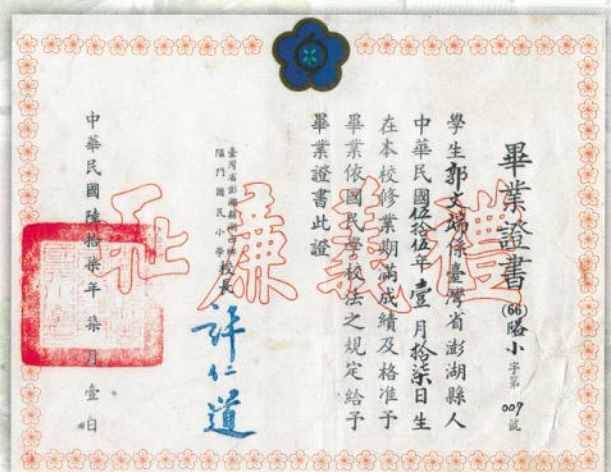 畢業證書
(66)隘小字第009號
學生郭文端係臺灣省澎湖縣人
中華民國伍拾伍年壹月拾柒日生
在本校修業期滿成績及格准予
畢業依國民學校法之規定給予
畢業證書此證
臺灣省澎湖縣湖西鄉
隘門國民小學校長
許仁道
中華民國陸拾柒年柒月壹日
禮義廉恥